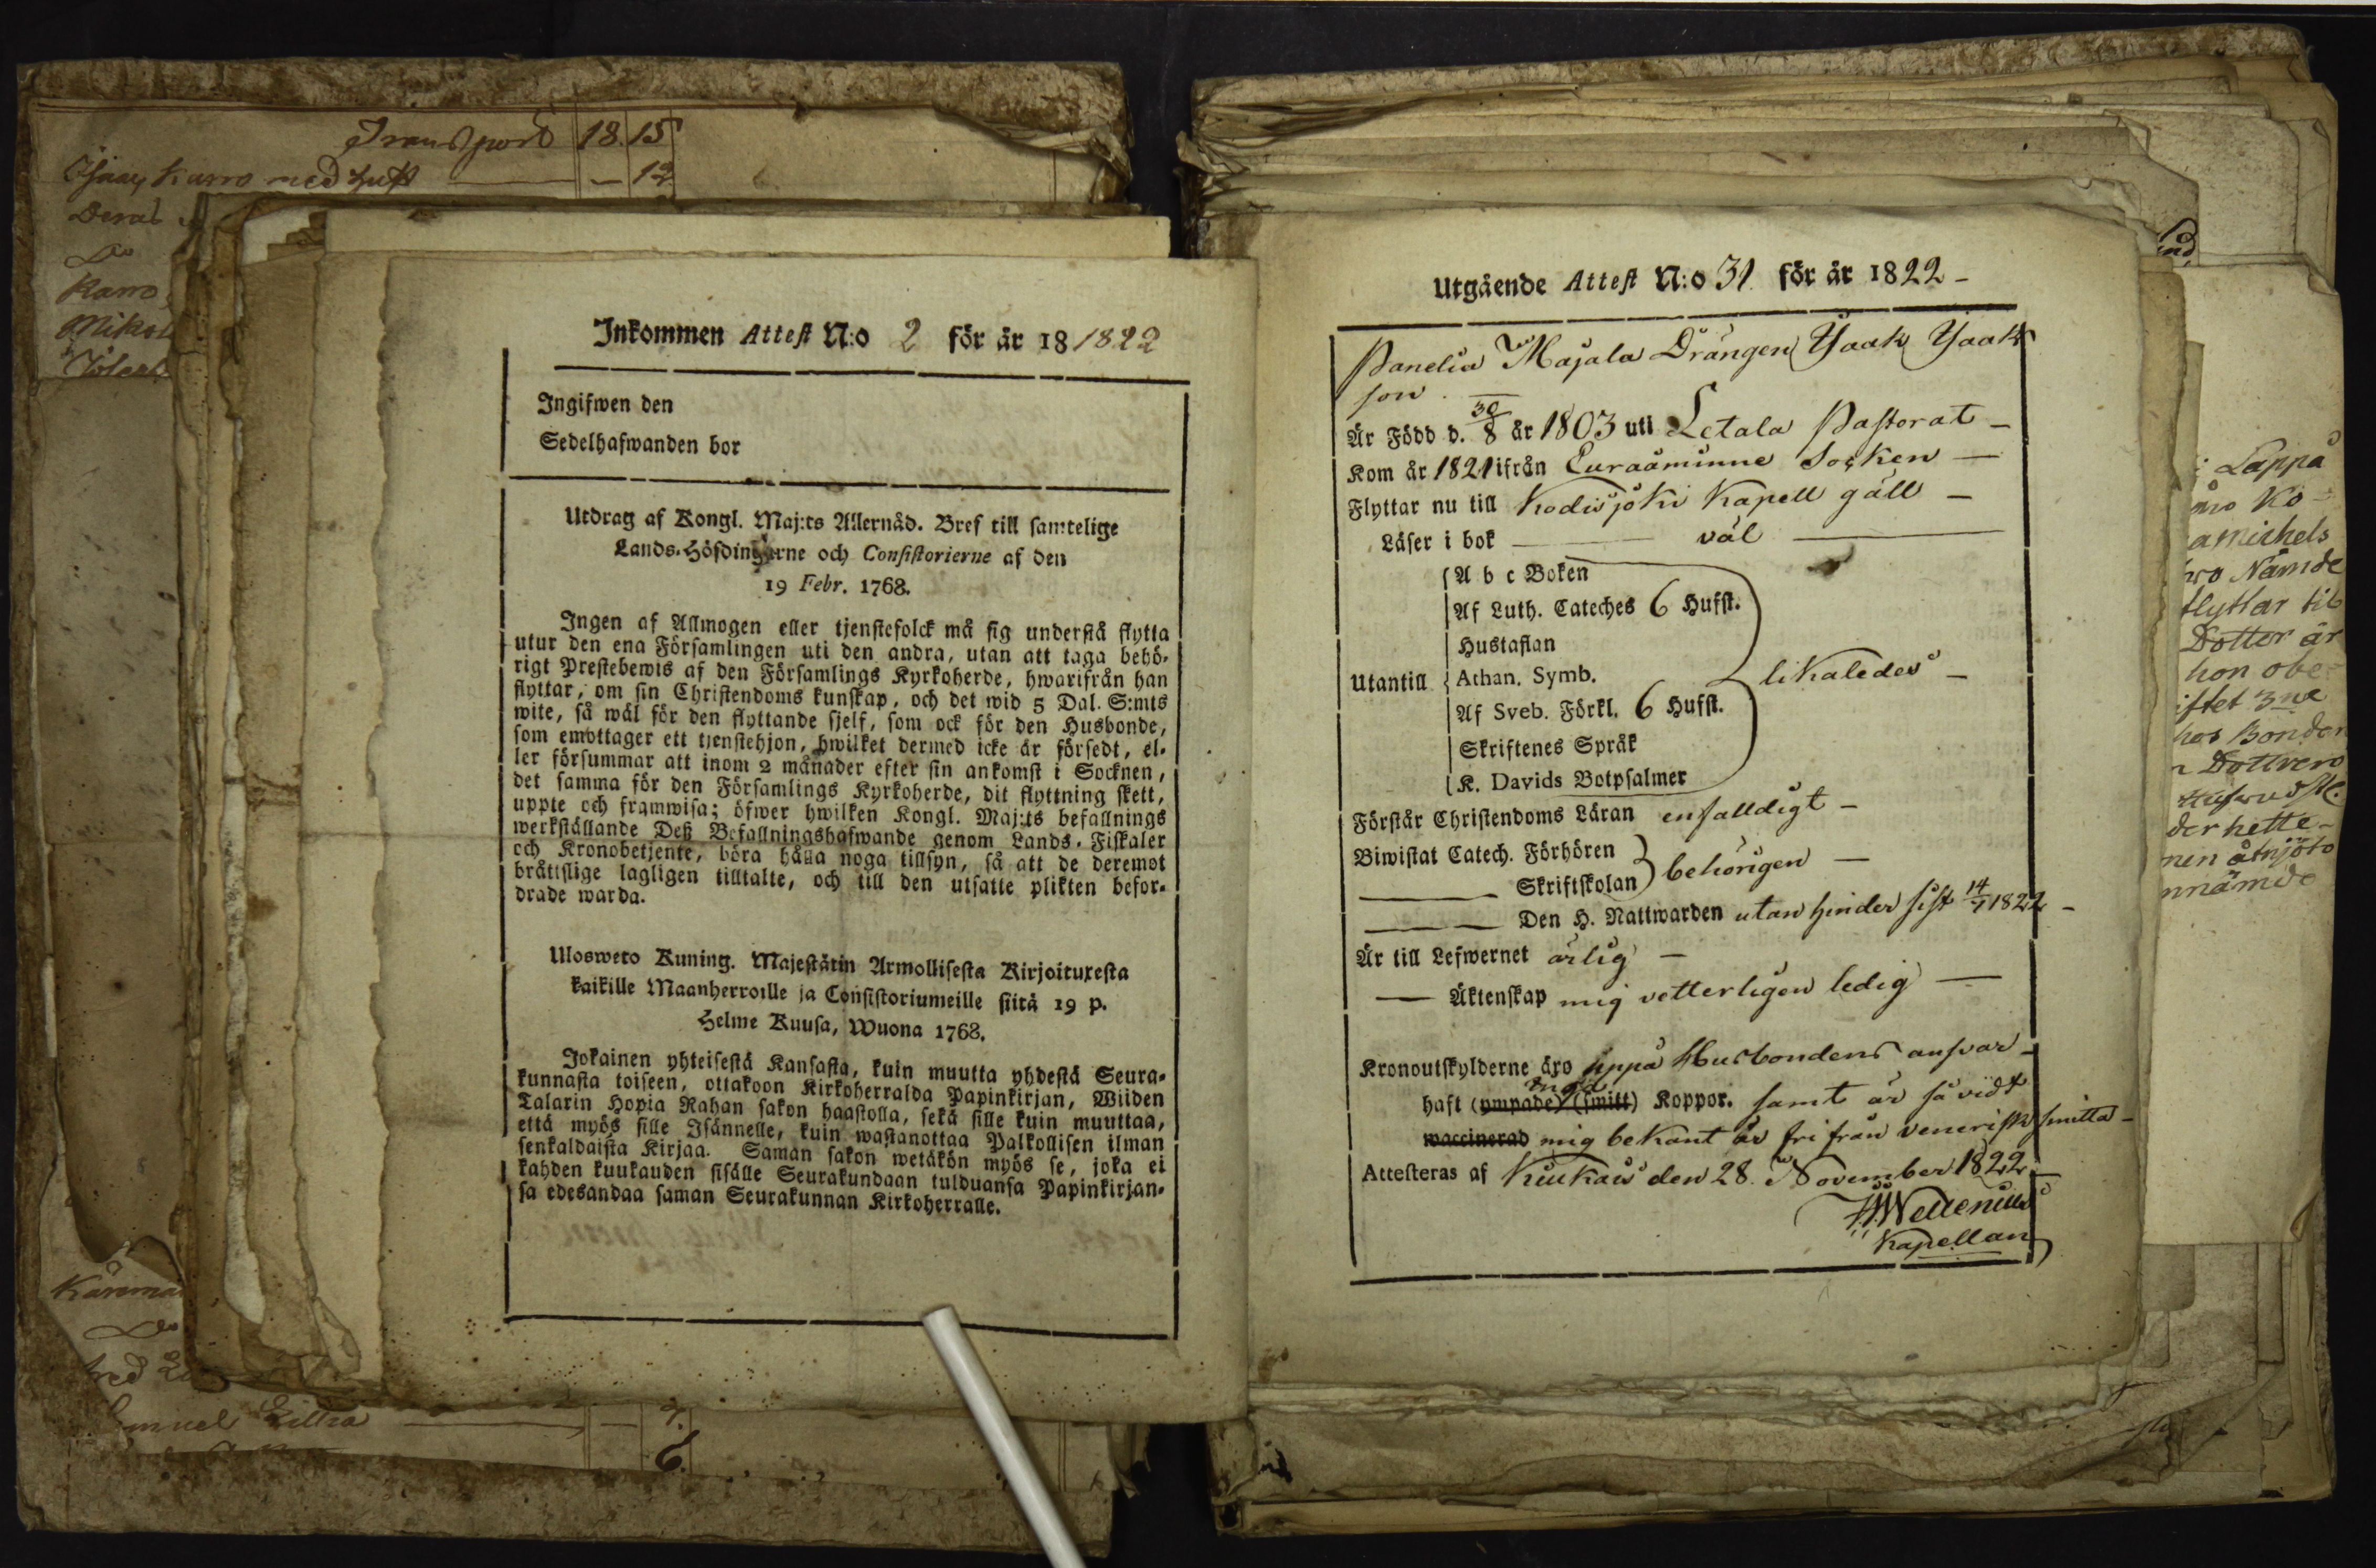 Transport 18. 15
Isaac Karro med Hust — — 12
Deras
Do
Karro
Mikol
Inkommen Attest N:o 2 för år 18 1822
Ingifwen den
Sedelhafwanden bor
Utdrag af Kongl. Maj:ts Allernåd. Bref till samtelige
Lands-Höfdingarne och Consistorierne af den
19 Febr. 1768.
Ingen af Allmogen eller tjenstefolck må sig understå flytta
utur den ena Församlingen uti den andra, utan att taga behö-
rigt Prestebewis af den Församlings Kyrkoherde, hwarifrån han
flyttar, om sin Christendoms kunskap, och det wid 5 Dal. S:mts
wite, så wäl för den flyttande sjelf, som ock för den Husbonde,
som emottager ett tjenstehjon, hwilket dermed icke är försedt, el-
ler försummar att inom 2 månader efter sin ankomst i Socknen,
det samma för den Församlings Kyrkoherde, dit flyttning skett,
uppte och framwisa; öfwer hwilken Kongl. Maj:ts befallnings
werkställande Deß Befallningshafwande genom Lands-Fiskaler
och Kronobetjente, böra hålla noga tillsyn, så att de deremot
bråttslige lagligen tilltalte, och till den utsatte plikten befor-
drade warda.
Ulosweto Kuning. Majestätin Armollisesta Kirjoituxesta
kaikille Maanherroille ja Consistoriumeille siitä 19 p.
Helme Kuusa, Wuona 1768.
Jokainen yhteisestä Kansasta, kuin muutta yhdestä Seura-
kunnasta toiseen, ottakoon Kirkoherralda Papinkirjan, Wiiden
Talarin Hopia Rahan sakon haastolla, sekä sille kuin muuttaa,
että myös sille Isännelle, kuin wastanottaa Palkollisen ilman
senkaldaista Kirjaa. Saman sakon wetäkön myös se, joka ei
kahden kuukauden sisälle Seurakundaan tulduansa Papinkirjan-
sa edesandaa saman Seurakunnan Kirkoherralle.
Do
Lillra — — 7.
6.
Utgående Attest N:o 31 för år 1822 -
Panelia Majala Drängen Isaak Isaaks
son.
Är Född d. 30/8 år 1803 uti Letala Pastorat -
Kom år 1821 ifrån Euraåminne Socken —
Flyttar nu till Kodisjoki Kapell gäll -
Läser i bok — väl —
A b c Boken
Af Luth. Cateches 6 Hufst.
Hustaflan
Utantill Athan. Symb. likaledes -
Af Sveb. Förkl. 6 Hufst.
Skriftenes Språk
K. Davids Botpsalmer
Förstår Christendoms Läran enfalldigt -
Biwistat Catech. Förhören
— Skriftskolan behörigen —
— Den H. Nattwarden utan hinder sist 14/7 1822 -
Är till Lefwernet ärlig —
— Äktenskap mig vetterligen ledig —
Kronoutskylderne äro uppå Husbondens ansvar -
haft (ympade) (smitt) Koppor. samt är så vidt
waccinerad mig bekant är fri från venerisk smitta -
Attesteras af Kiukais den 28. November 1822.
Kapellan
Lappa
Ko-
amichels
Nämde
flyttar til
Dotter är
hon obe-
iftet 3ne
hos Bonden
Dottren
der hette -
nen åtnjöto
nnämde